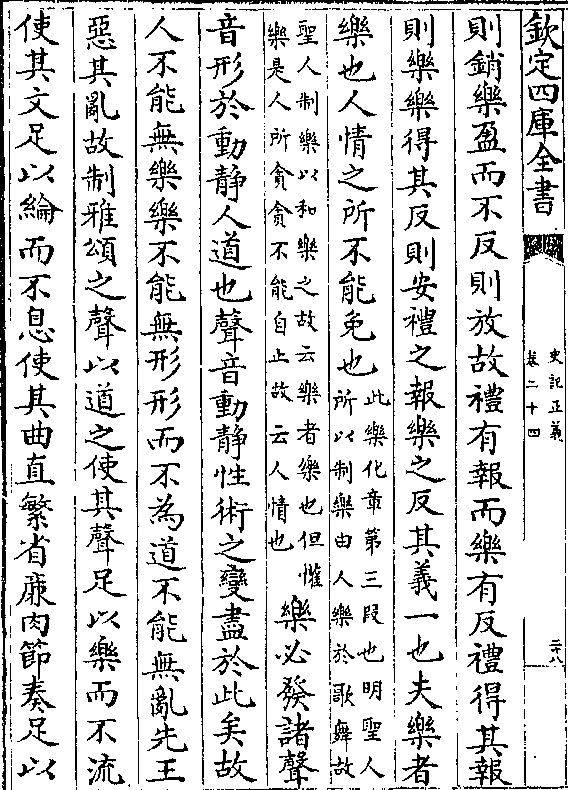 欽定四庫全書
史記正義
卷二十四
二十八
則銷樂盈而不反則放故禮有報而樂有反禮得其報
則樂樂得其反則安禮之報樂之反其義一也夫樂者
樂也人情之所不能免也
此樂化章第三段也明聖人
所以制樂由人樂於歌舞故
聖人制樂以和樂之故云樂者樂也但懽
樂是人所貪貪不能自止故云人情也
樂必發諸聲
音形於動静人道也聲音動静性術之變盡於此矣故
人不能無樂樂不能無形形而不為道不能無亂先王
惡其亂故制雅頌之聲以道之使其聲足以樂而不流
使其文足以綸而不息使其曲直繁省廉肉節奏足以